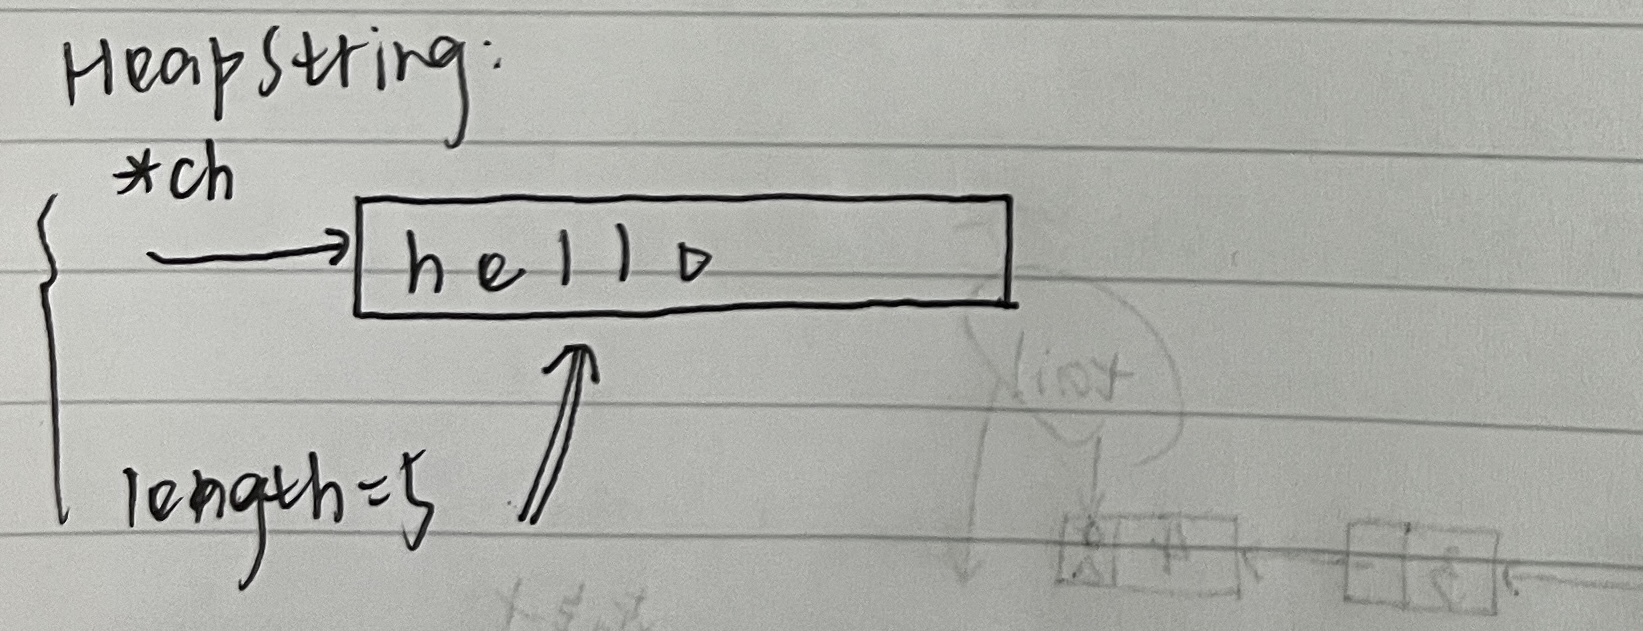 HeapString:
*ch
hello
length=5